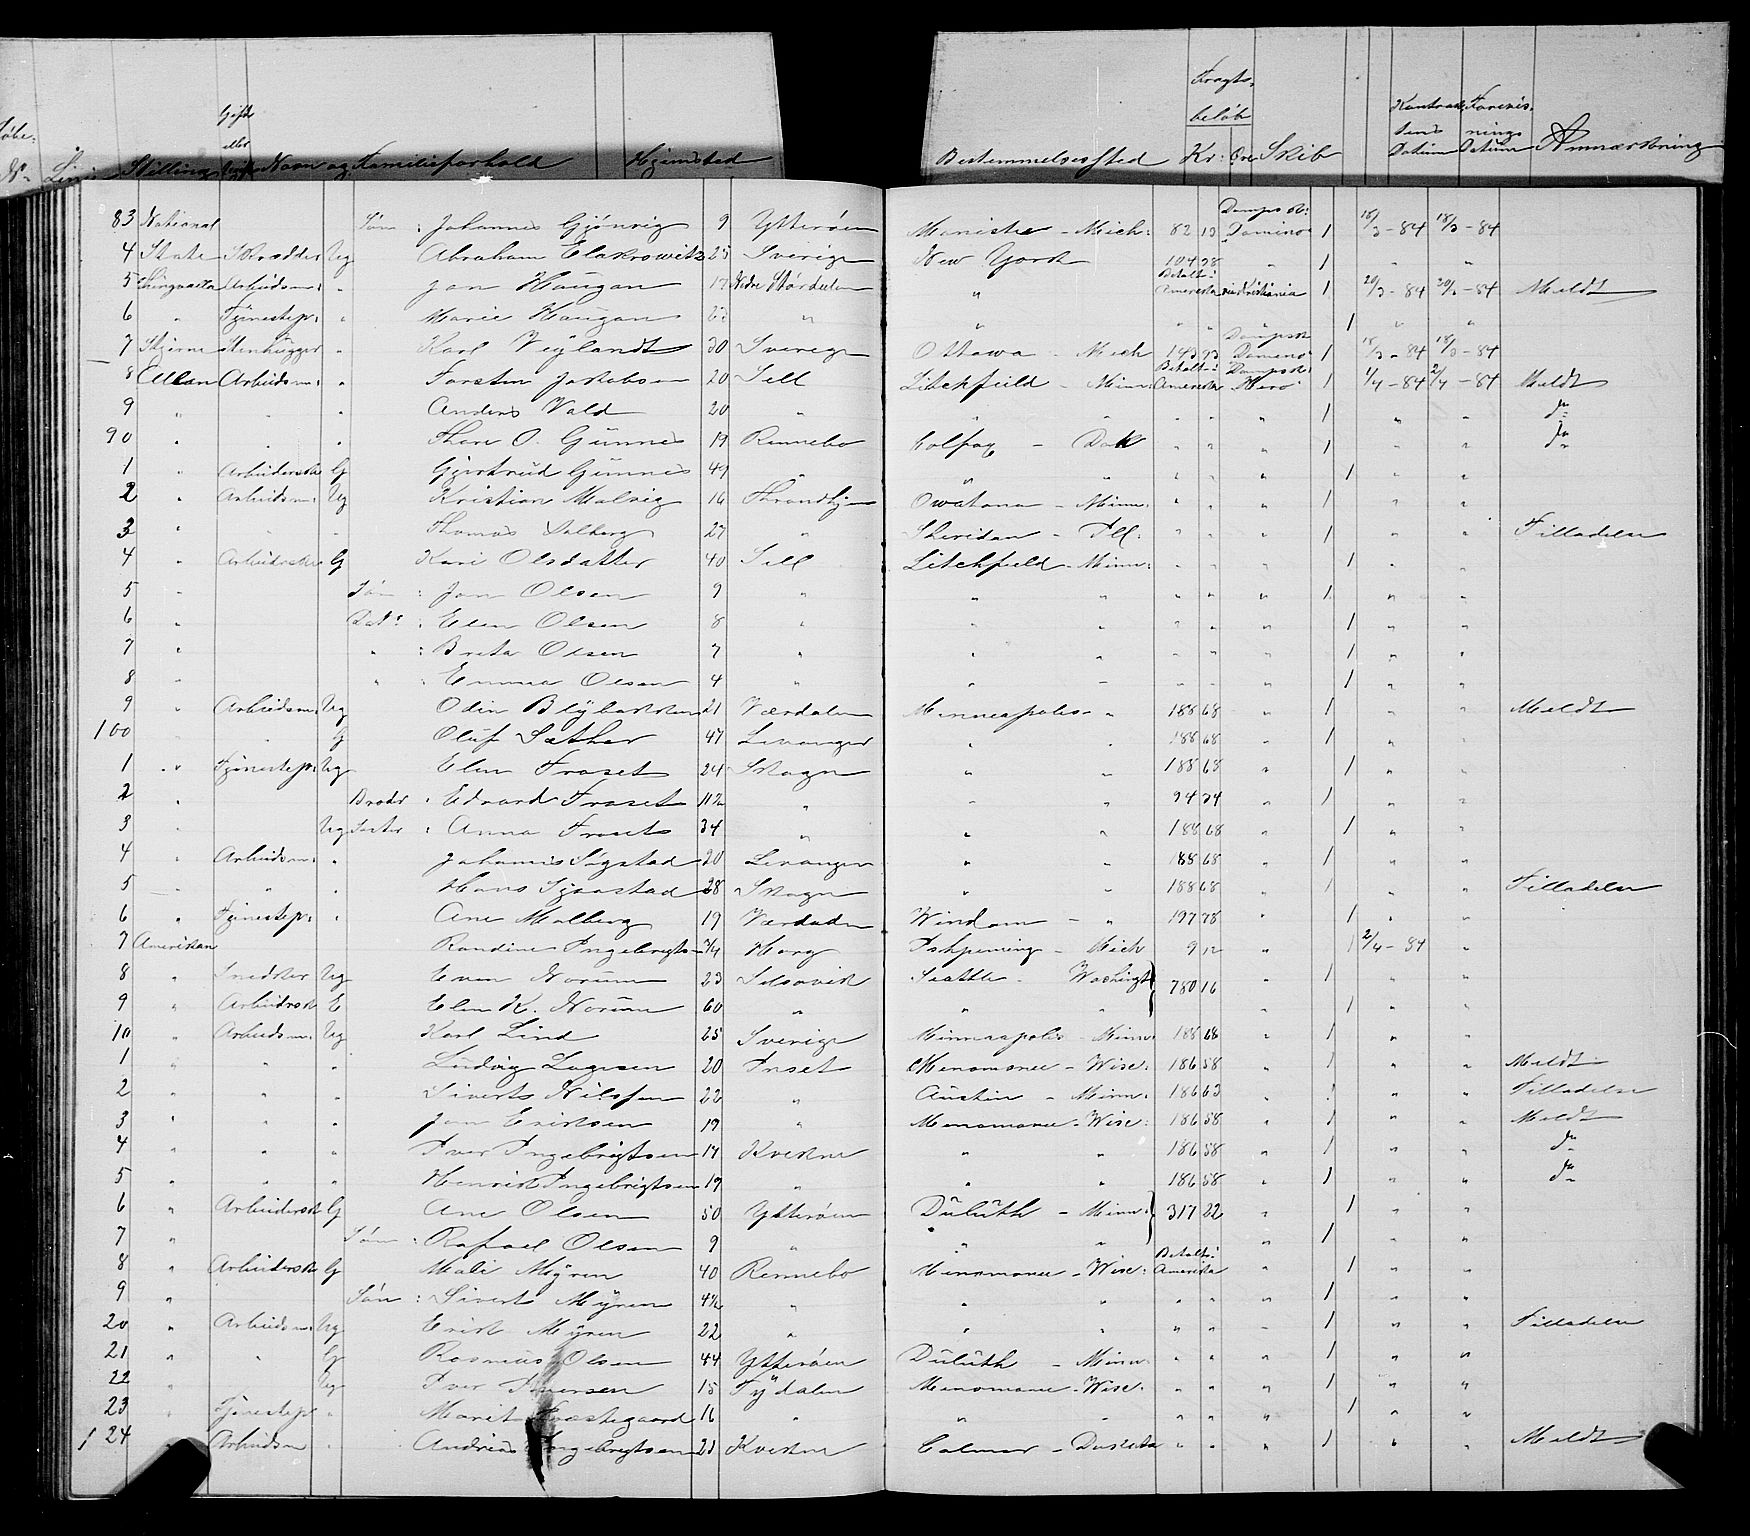 Løbe- Gift eller Fragtbeløb Kontraktens Forevisnings
No Linie Stilling Navn og Familieforhold Hjemsted Bestemmelsessted Kr: Øre Skib Datum Datum Anmærkning
83 National Søn : Johannes Gjønvig 9 Ytterøen Manistee - Mich: 82 13 Dampsk: Domino 1 18/3 - 84 18/3 - 84
4 State Skrædder Ug Abraham 25 Sverige New York 104 28 " 1 " "
5 Thingvalla Arbeidsm: " Jon Haugan 17 Nedre Størdalen " Betalt i Amerika via Kristiania 1 20/3 - 84 20/3 - 84 Meldt
6 " Tjenestep: " Marie Haugan 23 " " " " 1 " "
7 Stjerne Stenhugger " Karl Veylandt 30 Sverige Ottawa - Mich 143 93 Dampsk Domino 1 18/3 - 84 18/3 - 84
8 Allan Arbeidsm: " Torsten Jakobsen 20 Sell Litchfield - Minn: Betalt i Amerika Dampsk: Hero 1 1/4 - 84 2/4 - 84 Meldt
9 " " " Anders Vald 20 " " " " " " 1 " " do
90 " " " Thore O. Gunnes 19 Rennebo Colfax - Dak " " " 1 " " do
1 " Arbeidersk G Gjertrud Gunnes 49 " " " " " " 1 " "
2 " Arbeidsm: Ug Kristian Malvig 16 Throndhjem Owatona - Minn: " " " 1 " "
3 " " " Thomas Solberg 27 " Sheridan - Ill: " " " 1 " " Tilladelse
4 " Arbeidersk G Kari Olsdatter 40 Sell Litchfield - Minn: " " " 1 " "
5 " Søn : Jon Olsen 9 " " " " " " 1 " "
6 " Dat: : Elen Olsen 8 " " " " " " 1 " "
7 " " : Breta Olsen 7 " " " " " " 1 " "
8 " " : Emma Olsen 4 " " " " " " 1 " "
9 " Arbeidsm: Ug Odin Blybakken 21 Værdalen Minneapolis - " 188 68 " 1 " " Meldt
100 " G Oluf Sæther 47 Levanger " " 188 68 " 1 " "
1 " Tjenestep: Ug Elen Fraset 24 Skogn " " 188 68 " 1 " "
2 " Broder : Edvard Fraset 11 1/2 " " " 94 34 " 1 " "
3 " Ug Søster : Anna Fraset 34 " " " 188 68 " 1 " "
4 " Arbeidsm: " Johannes Sigstad 20 Levanger " " 188 68 " 1 " "
5 " " " Hans 28 Skogn " " 188 68 " 1 " " Tilladelse
6 " Tjenestep: " Ane Malberg 19 Værdalen Windom - " 197 78 " 1 " "
7 Amerikan Randine Ingebrigtsen 3/4 Horg Ishpeming - Mich 9 12 " 1 2/4 - 84 "
8 " Snedker Ug Even Norum 23 Selsovik Seattle - Washingt 780 16 " 1 " "
9 " Arbeidersk E Elen K. Norum 60 " " " " 1 " "
10 " Arbeidsm: Ug Karl Lind 25 Sverige Minneapolis - Minn: 188 68 " 1 " "
1 " " " Ludvig Lagesen 20 Inset Menomonee - Wisc: 186 58 " 1 " " Meldt
2 " " " Sivert Nilssen 22 " Austin - Minn: 186 63 " 1 " " Tilladelse
3 " " " Jon Eriksen 19 " Menomonee - Wisc: 186 58 " 1 " " Meldt
4 " " " Iver Ingebrigtsen 17 Kvikne " " 186 58 " 1 " " do
5 " " " Henrik Ingebrigtsen 19 " " " 186 58 " 1 " " do
6 " Arbeidersk G Ane Olsen 50 Ytterøen Duluth - Minn: 317 22 " 1 " "
7 " Søn : Rafael Olsen 9 " " " " 1 " "
8 " Arbeidersk G Mali Myren 40 Rennebo Menomonee - Wisc: Betalt i Amerika " 1 " "
9 " Søn : Sivert Myren 4 1/2 " " " " " " 1 " "
20 " Arbeidsm: Ug Erik Myren 22 " " " " " " 1 " " Tilladelse
21 " " G Rasmus Olsen 44 Ytterøen Duluth - Minn: " " " 1 " "
22 " Ug Iver Iversen 15 Tydalen Menomonee - Wisc: " " " 1 " "
23 " Tjenestep " Marit 16 " " " " " " 1 " "
124 " Arbeidsm " Andreas Ingebrigtsen 23 Kvikne Colmar - Dakota " " " 1 " " Meldt